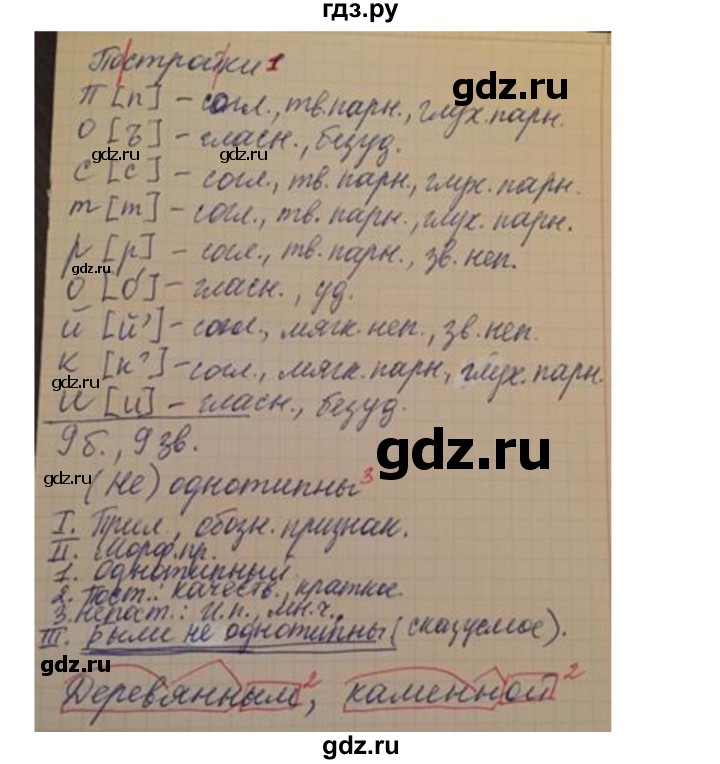 гдз.ру
Постройки 1
п [п] – согл., тв. парн., глух. парн.
о [ъ] – гласн., безуд.
с [с] – согл., тв. парн., глух. парн.
т [т] – согл., тв. парн., глух. парн.
р [р] – согл., тв. парн., зв. неп.
о [о́] – гласн., уд.
й [й'] – согл., мягк. неп., зв. неп.
к [к'] – согл., мягк. парн, глух. парн.
и [и] – гласн., безуд.
9 б., 9 зв.
(Не) однотипны 3
I. Прил., обозн. признак.
II. Морф. пр.
1. Однотипный.
2. Пост.: качеств., краткое.
3. Непост.: и.п., мн.ч.,
III. Были не однотипны (сказуемое).
Деревянным 2, каменной 2
gdz.ru
gdz.ru
gdz.ru
gdz.ru
gdz.ru
gdz.ru
gdz.ru
gdz.ru
gdz.ru
gdz.ru